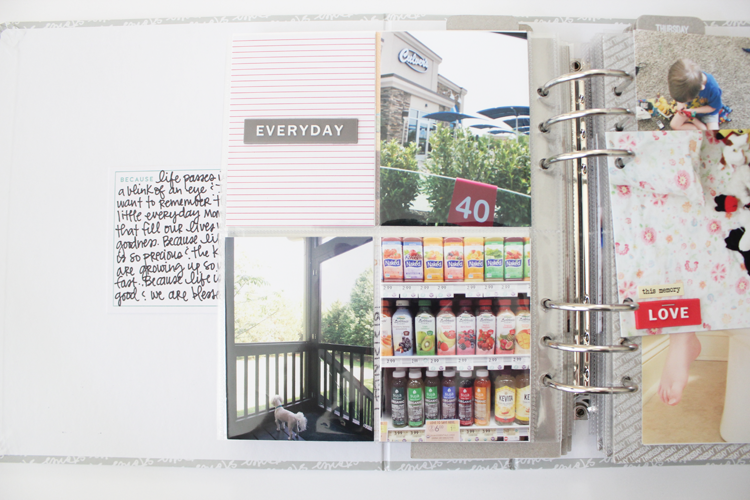 BECAUSE life passes
a blink of an eye &
want to remember
little everyday mom
that fill our lives
goodness. Because li
is so precious & the k
are growing up so
fast. Because life
good & we are blesse
EVERYDAY
Culver's
40
Naked Naked Naked Naked Naked Naked
KEVITA
THURSDAY
this memory
LOVE